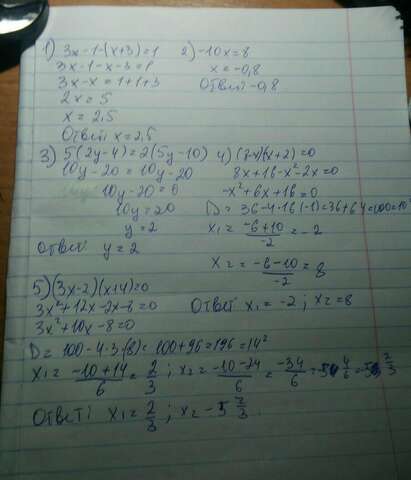 1) 3x-1-(x+3)=1
3x-1-x-3=1
3x-x=1+1+3
2x=5
x=2,5
Ответ: x=2,5
2) -10x=8
x=-0,8
Ответ -0,8
3) 5(2y-4)=2(5y-10)
10y-20=10y-20
10y-20=0
10y=20
y=2
Ответ y=2
4) (8-x)(x+2)=0
8x+16-x²-2x=0
-x²+6x+16=0
D=36-4·16(-1)=36+64=100=10²
x₁=-6+10/-2=-2
x₂=-6-10/-2=8
Ответ x₁=-2; x₂=8
5) (3x-2)(x+4)=0
3x²+12x-2x-8=0
3x²+10x-8=0
D=100-4·3(8)=100+96=196=14²
x₁=-10+14/6=2/3; x₂=-10-24/6=-34/6=-5 4/6=-5 2/3
Ответ: x₁=2/3; x₂-5 2/3